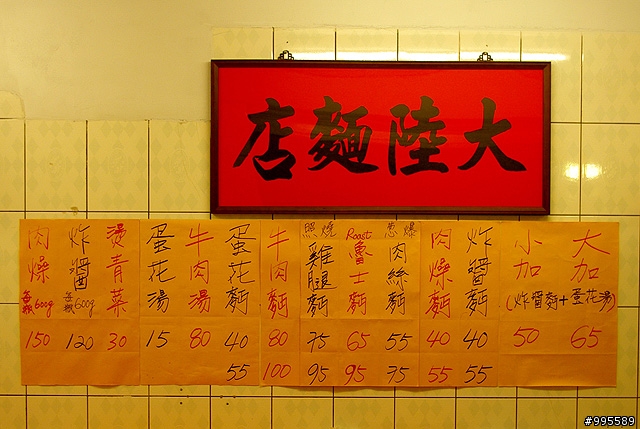 大陸麵店
大加 小加
(炸醬麵+蛋花湯)
65 50
炸醬麵 40 55
肉燥麵 40 55
蔥爆肉絲麵 55 75
Roast 魯士麵 65 95
照燒雞腿麵 75 95
牛肉麵 80 100
蛋花麵 40 55
牛肉湯 80
蛋花湯 15
燙青菜 30
炸醬 每瓶600g 120
肉燥 每瓶600g 150
#995589